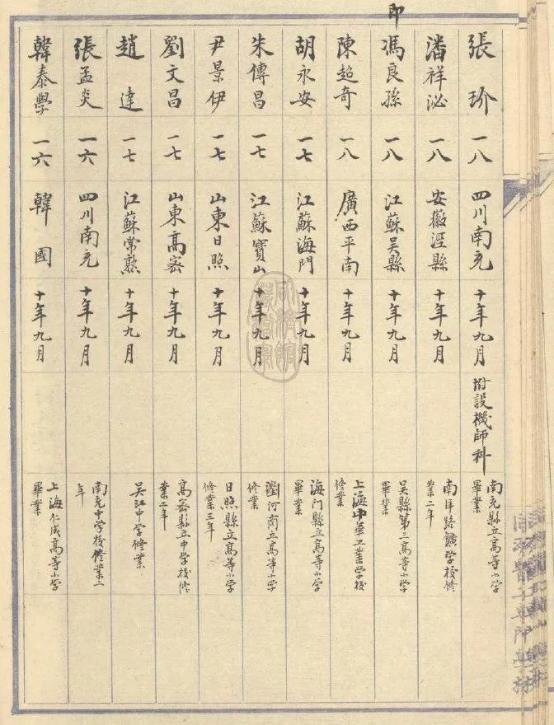 張玠 一八 四川南充 十年九月 附設機師科 南充縣立高等小学
畢業
潘祥泌 一八 安徽涇縣 十年九月 南洋路鑛学校修
業二年
即
馮良孫 一八 江蘇吳縣 十年九月 吳縣第三高等小学
畢業
陳超奇 一八 廣西平南 十年九月 上海中華工業学校
修業
胡永安 一七 江蘇海門 十年九月 海门縣立高等小学
畢業
朱傳昌 一七 江蘇寶山 十年九月 瀏河商立高等小学
修業
尹景伊 一七 山東日照 十年九月 日照縣立高等小学
修業三年
劉文昌 一七 山東高密 十年九月 高密縣立中学校修
業二年
趙達 一七 江蘇常熟 十年九月 吳江中学修業
張孟炎 一六 四川南充 十年九月 南充中学校修業二
年
韓泰學 一六 韓國 十年九月 上海仁成高等小学
畢業